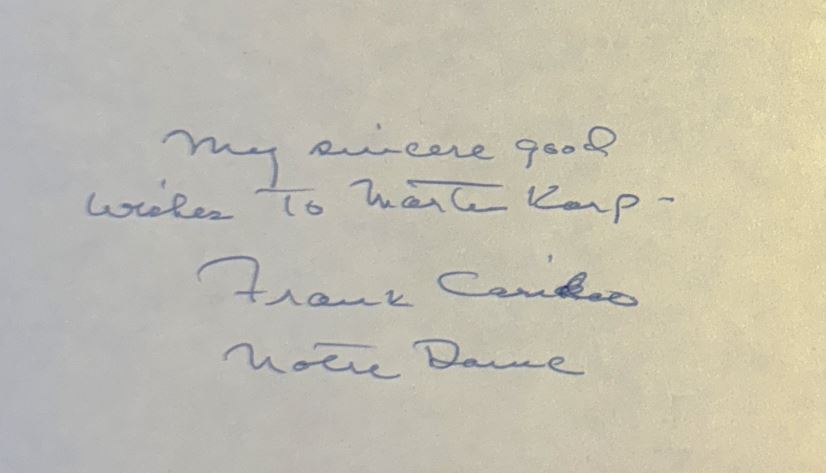 My sincere good
wishes To Martin Karp -
Frank Carideo
Notre Dame